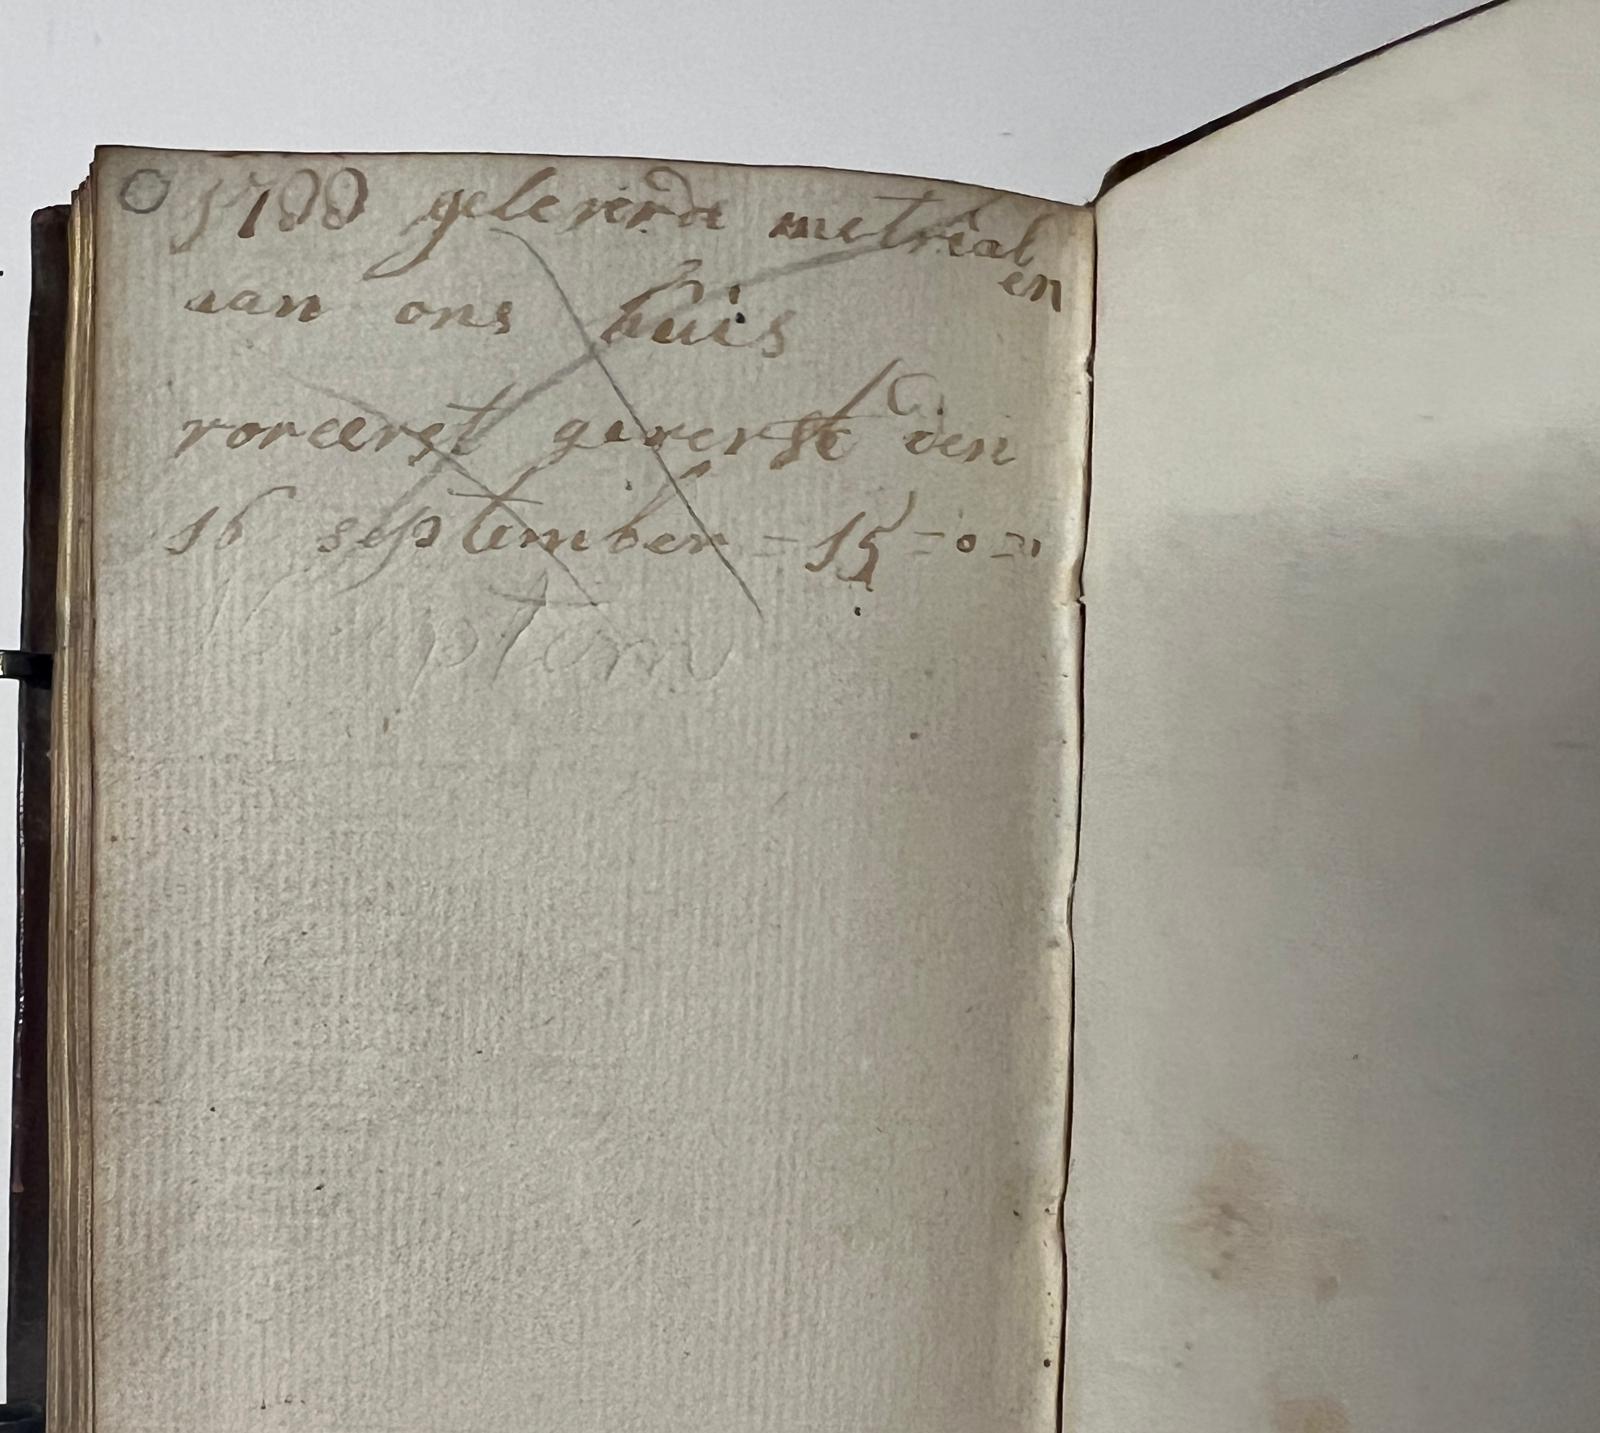 1788 geleverde metrialen
aan ons huis
voreerst geverft den
16 september = 15 = 0 =
ptem